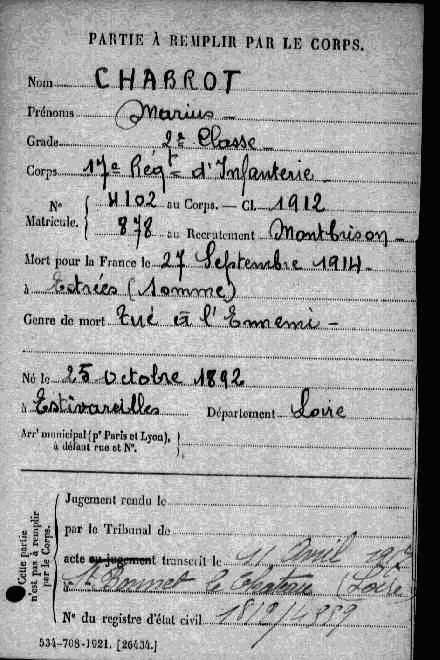 PARTIE À REMPLIR PAR LE CORPS.
Nom CHABROT
Prénoms Marius
Grade 2e Classe
Corps 17e Régt d'Infanterie
N° Matricule. { 4102 au Corps. — Cl. 1912
878 au Recrutement Montbrison
Mort pour la France le 27 Septembre 1914
à Estrées (Somme)
Genre de mort Tué à l'Ennemi
Né le 25 Octobre 1892
à Estivareilles Département Loire
Arrt municipal (pr Paris et Lyon),
à défaut rue et N°.
Cette partie n'est pas à remplir par le Corps.
Jugement rendu le
par le Tribunal de
acte ou jugement transcrit le 11 Avril
à St Bonnet le Château (Loire)
N° du registre d'état civil
534-708-1921. [26434.]